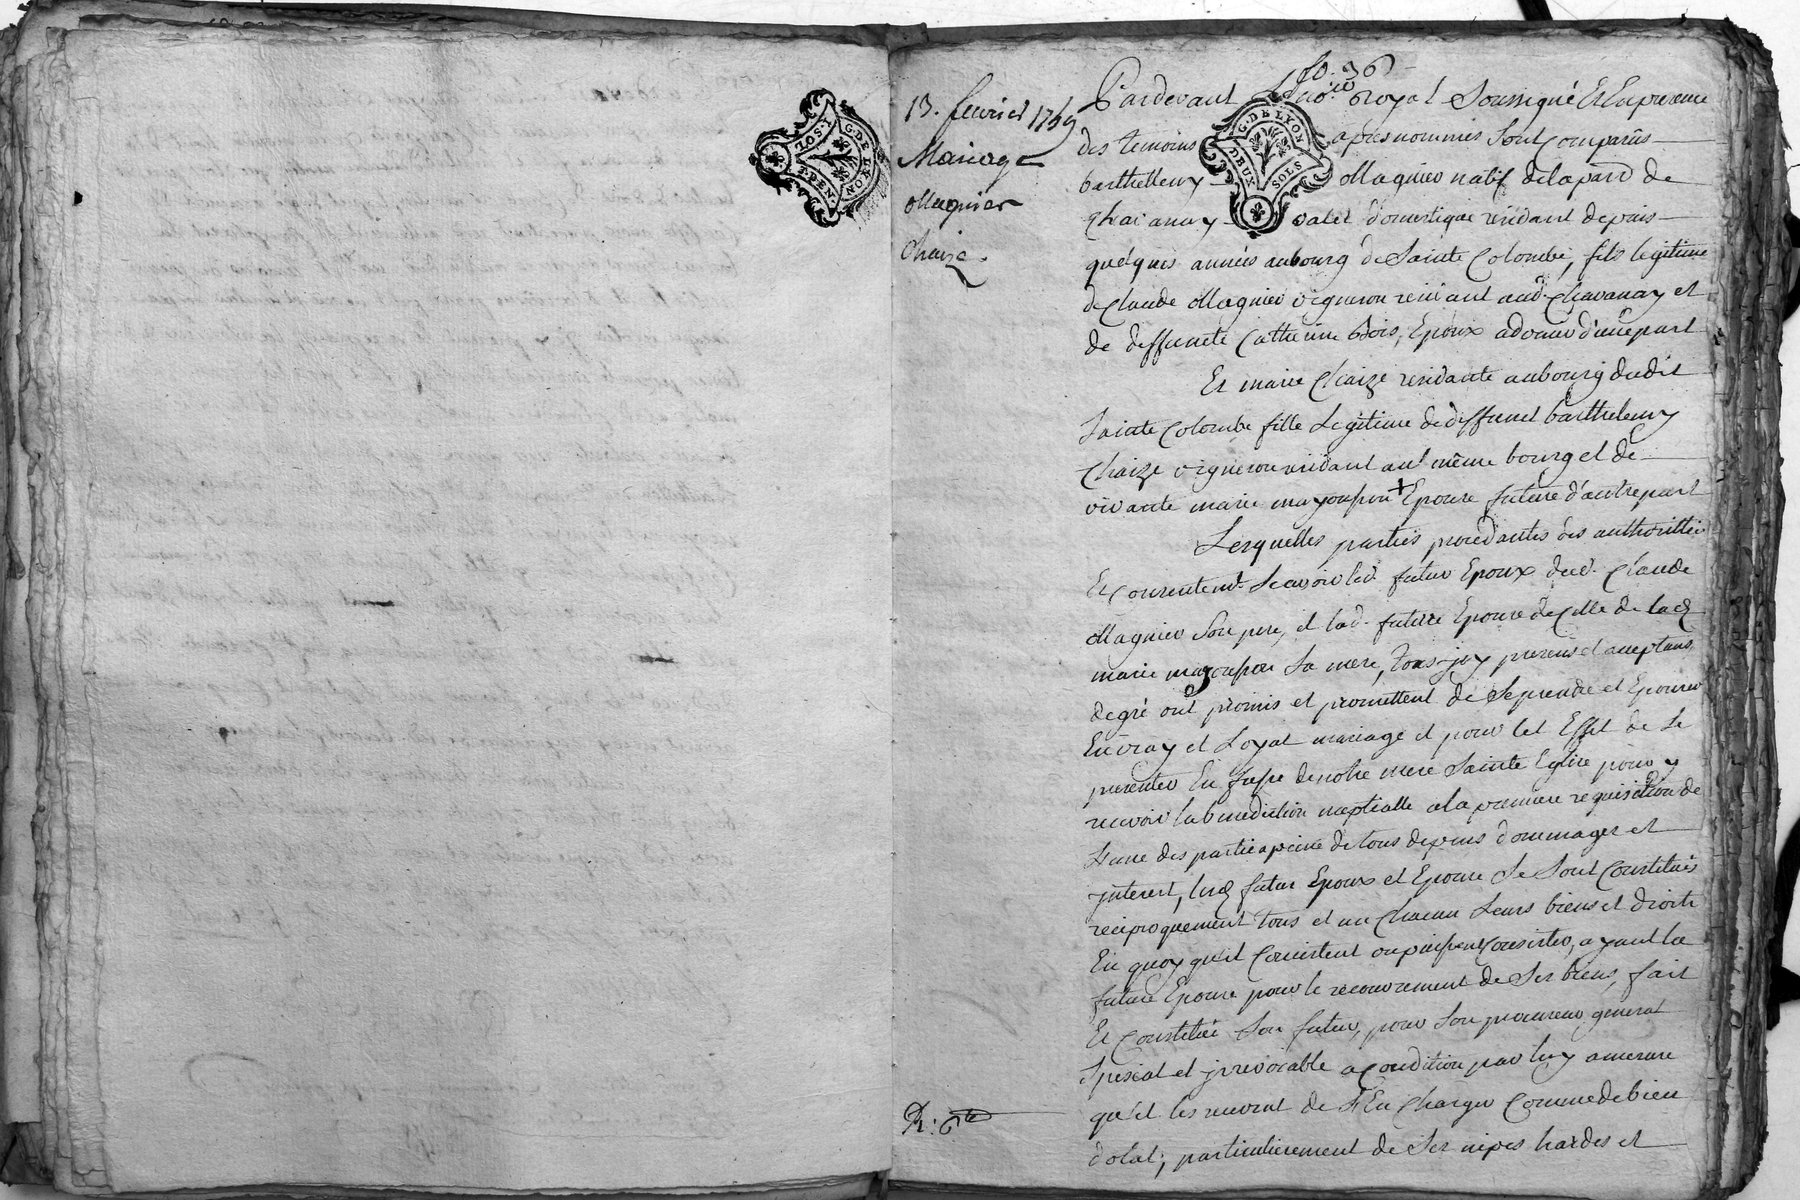 fo. 36
13. fevrier 1769
Mariage
Magnier
Chaize.
G. DE LYON
DEUX SOLS
Pardevant Le no.re Royal Soussigné Et Enpresence
des temoins apres nommés Sont Comparûs
barthellemy Magnier natif delapard de
Chavanay valet domestique residant depuis
quelques années aubourg de Sainte Colombe, fils legitime
de Claude Magnier vigneron residant aud. Chavanay et
de deffuncte Catherine Bois, Epoux advenir d'unepart
Et marie Chaize residante aubourg dudit
Sainte Colombe fille Legitime de deffunct barthelemy
Chaize vigneron residant aud même bourg et de
vivante marie mayoupou + Epouse future d'autrepart
Lesquelles parties procedantes des authorittés
Et Consentemt. Scavoir led. futur Epoux dud. Claude
Magnier Son pere, et lad. future Epouse de Celle de lad.
marie Sa mere, tous jcy presens et acceptans
degré ont promis et promettent de Seprendre et Epouser
En vray et Loyal mariage et pour cet Effet de Se
presenter En face denotre mere Sainte Eglise pour y
recevoir la benediction nuptialle ala premiere requisition de
L'une des partie apeine de tous depens dommages et
jnterest, lesd. futur Epoux et Epouse Se Sont Constitués
reciproquement tous et un Chacun Leurs biens et droits
En quoy qu'il Consistent ou puissent Consister, ayant la
future Epouse pour le recouvrement de Ses biens, fait
Et Constitué Son futur, pour Son procureur general
Special et jrrevocable a Condition par luy amesure
qu'il les recevra de S'En Charger Comme de bien
dotal; particulierement de Ses nipes hardes et